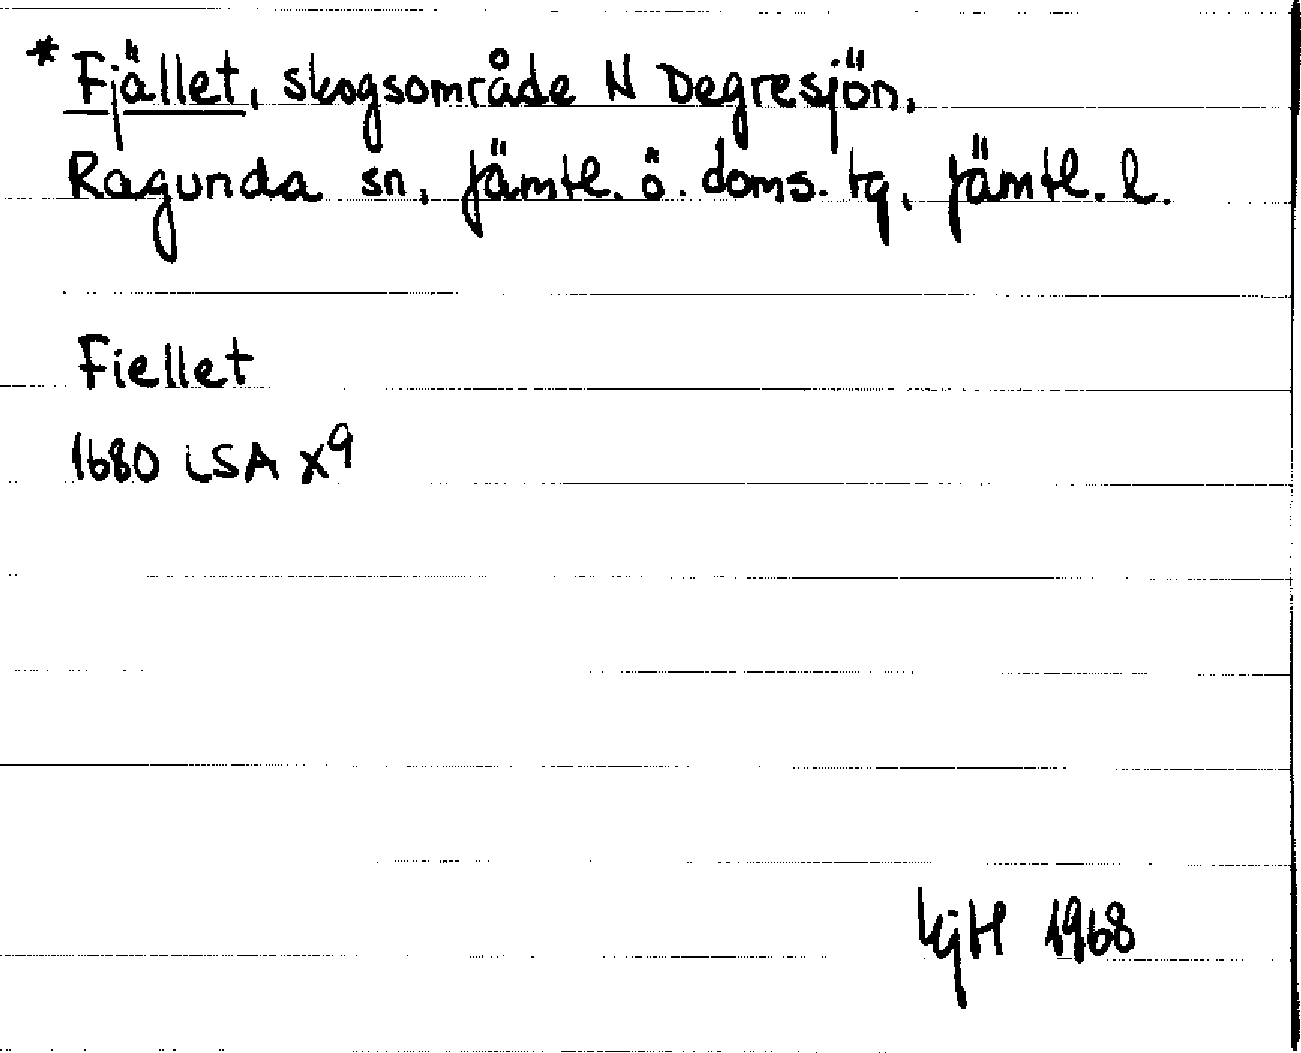 * Fjället, skogsområde N Degresjön,
Ragunda sn, Jämtl. ö. doms. tg, Jämtl. l.
Fiellet
1680 LSA X9
KjH 1968